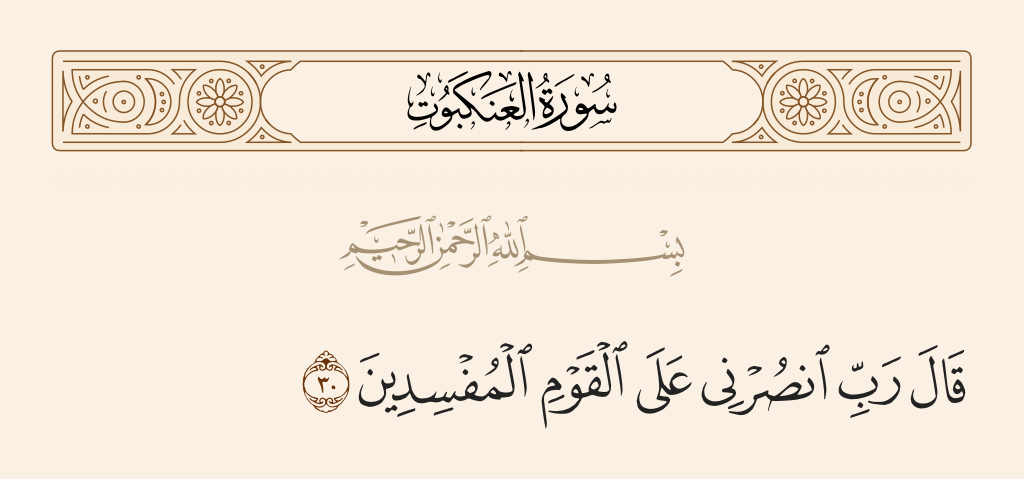 سُورَةُ الْعَنكَبُوتِ
بِسْمِ ٱللَّهِ ٱلرَّحْمَٰنِ ٱلرَّحِيمِ
قَالَ رَبِّ ٱنصُرْنِى عَلَى ٱلْقَوْمِ ٱلْمُفْسِدِينَ ٣٠